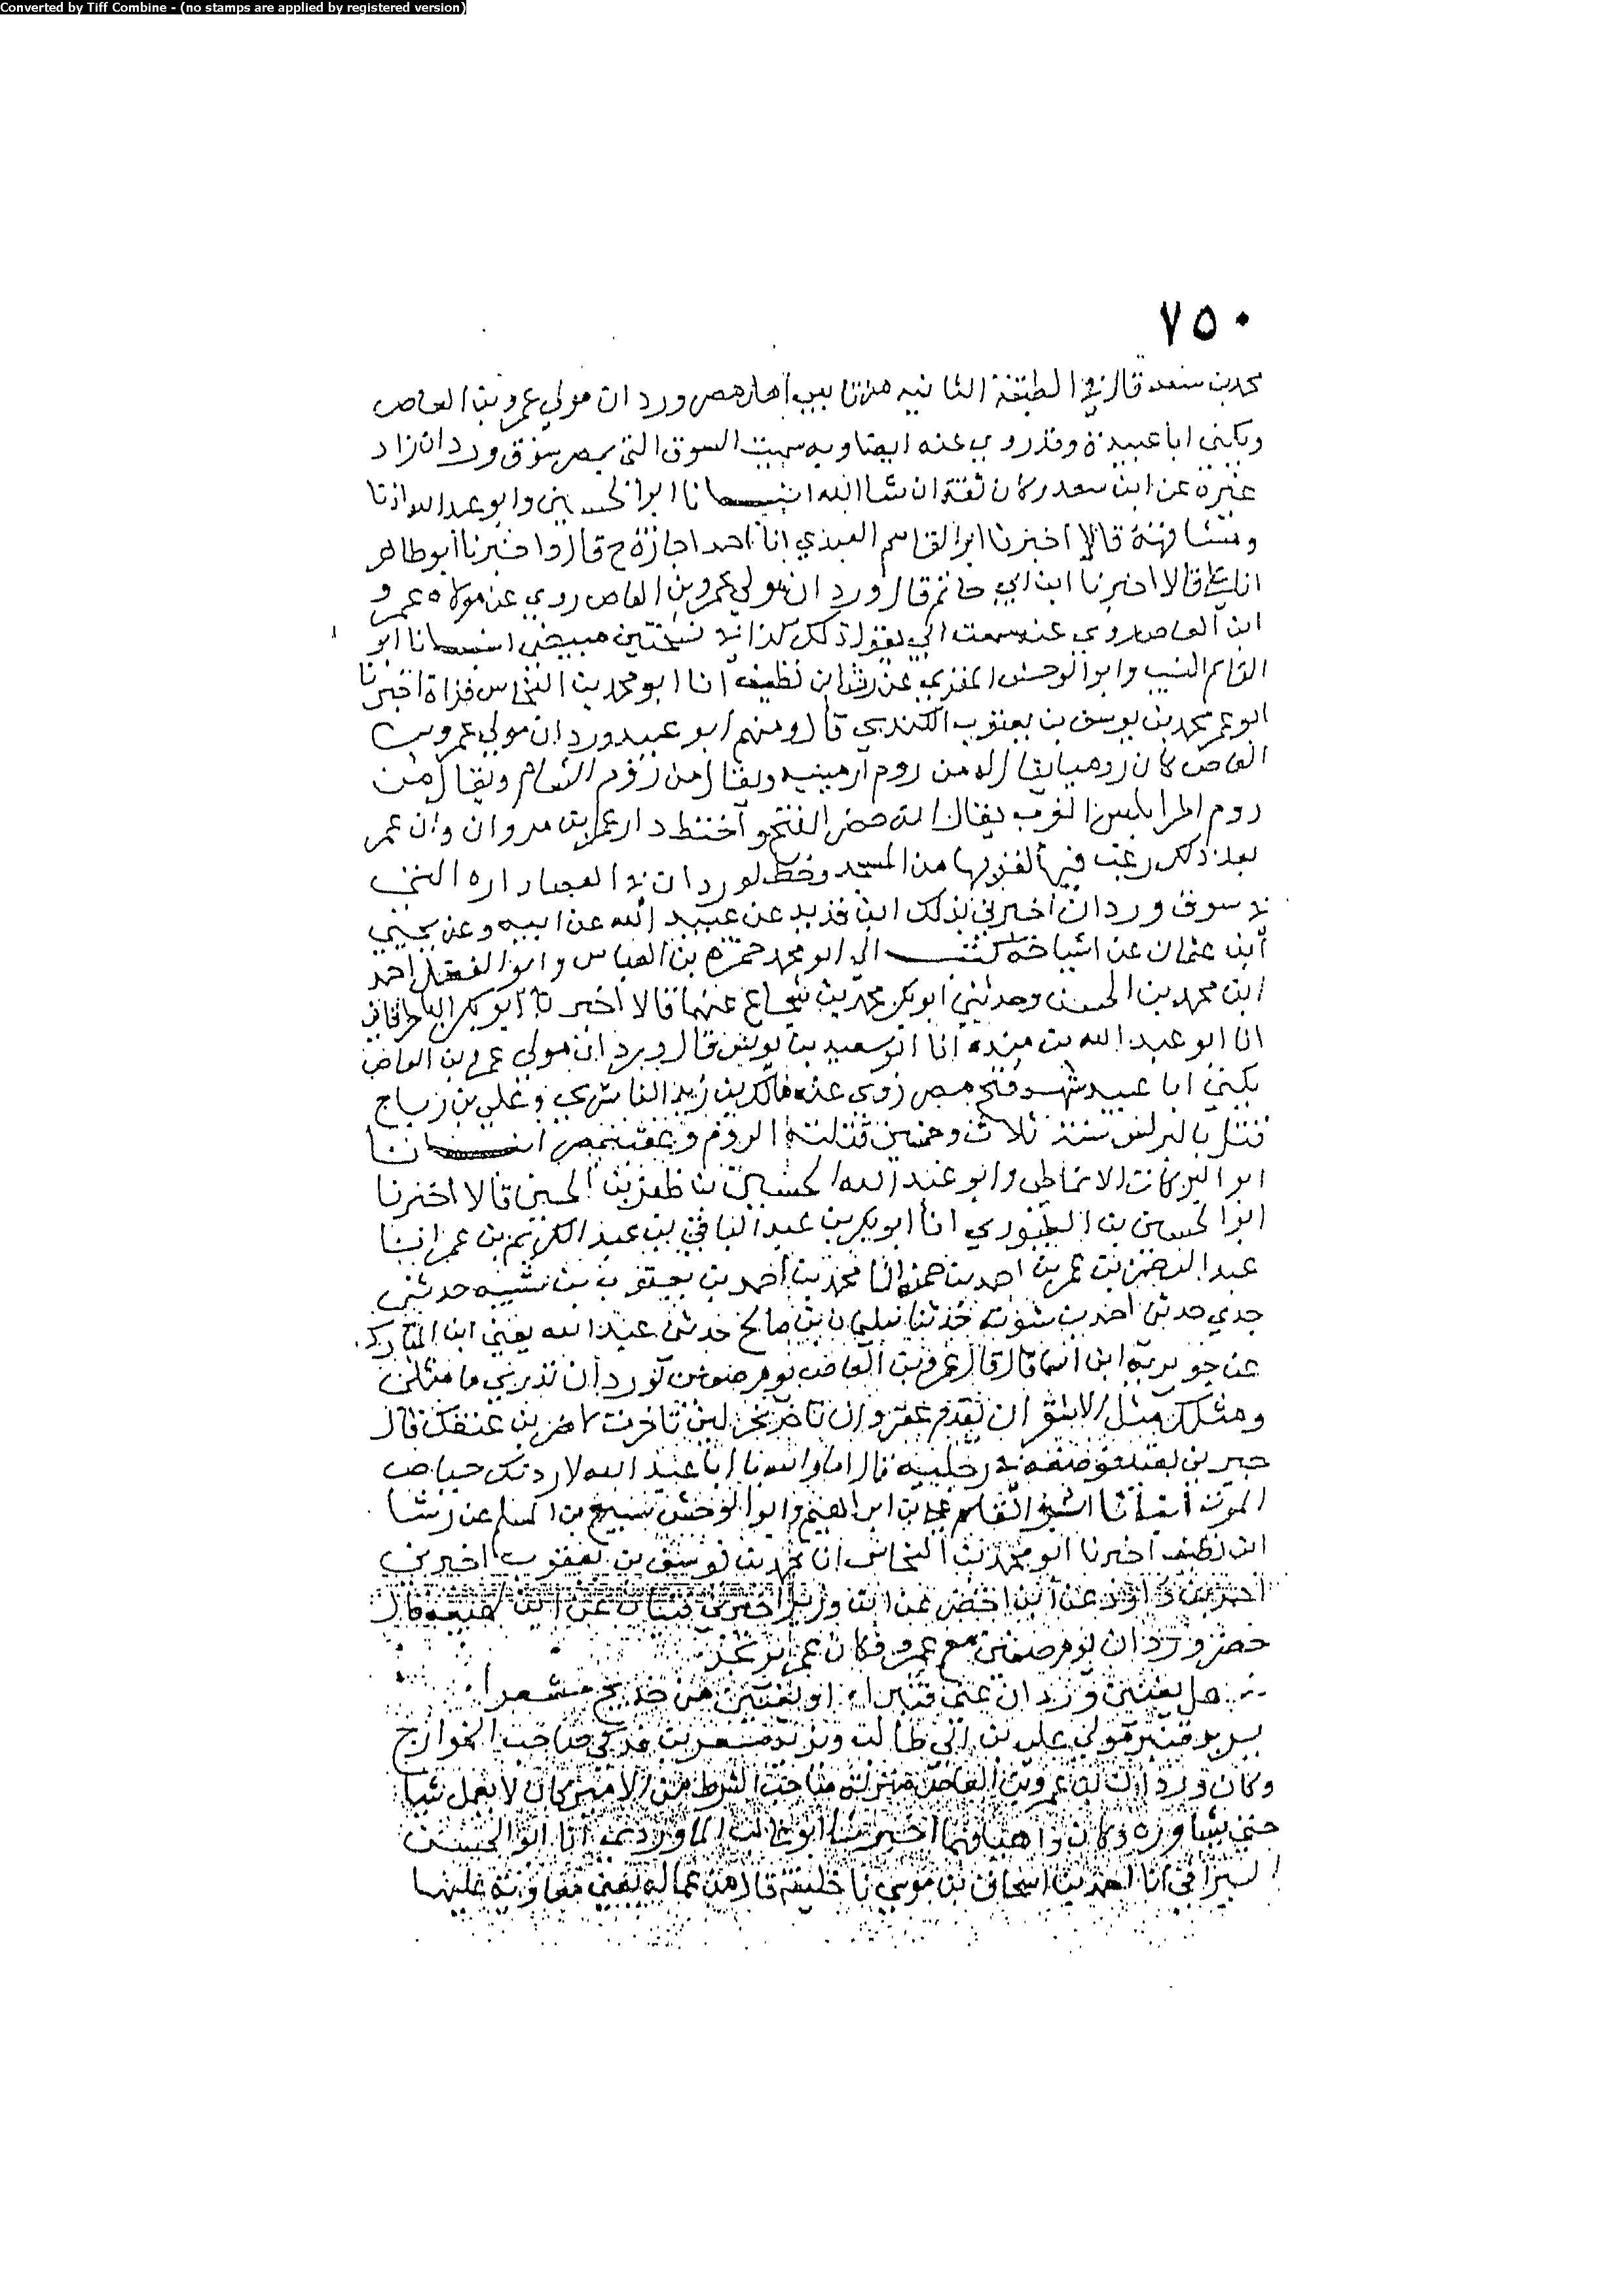 Converted by Tiff Combine - (no stamps are applied by registered version)
٧٥٠
محمد بن سعد قال في الطبقة الثانية من تابعي اهل مصر وردان مولى عمرو بن العاص
ويكنى ابا عبيدة وقد روي عنه ايضا وبه سميت السوق التي بمصر سوق وردان زاد
غيره عن ابن سعد وكان ثقة ان شا الله انبانا ابو الحسين وابو عبد الله اذنا
ومشافهة قالا اخبرنا ابو القاسم العبدي انا احمد اجازة ح قال واخبرنا ابو طاهر
انا علي قالا اخبرنا ابن ابي حاتم قال وردان مولى عمرو بن العاص روى عن مولاه عمرو
ابن العاص روى عنه سمعت ابي يقول ذلك كذا في نسختين مبيض انبانا ابو
القاسم النسيب وابو الوحش المقري عن رشا بن نظيف انا ابو محمد بن النحاس قراة اخبرنا
ابو عمر محمد بن يوسف بن يعقوب الكندي قال ومنهم ابو عبيد وردان مولى عمرو بن
العاص كان روميا يقال انه من روم ارمينيه ويقال من روم الشام ويقال من
روم اطرابلس الغرب يقال انه حضر الفتح واختط دار عمر بن مروان وان عمر
بعد ذلك رغب فيها لقربها من المسجد وخط لوردان في الفضا داره التي
في سوق وردان اخبرني بذلك ابن قديد عن عبيد الله عن ابيه وعن يحيى
ابن عثمان عن اشياخه كتب الي ابو محمد حمزة بن العباس وابو الفضل احمد
ابن محمد بن الحسن وحدثني ابو بكر محمد بن شجاع عنهما قالا اخبرنا ابو بكر الباطرقاني
انا ابو عبد الله بن منده انا ابو سعيد بن يونس قال وردان مولى عمرو بن العاص
يكنى ابا عبيد شهد فتح مصر روى عنه مالك بن زيد الناشري وعلي بن رباح
قتل بالبرلس سنة ثلاث وخمسين قتلته الروم وعقبه بمصر انبانا
ابو البركات الانماطي وابو عبد الله الحسين بن ظفر بن الحسين قالا اخبرنا
ابو الحسين بن الطيوري انا ابو بكر بن عبد الباقي بن عبد الكريم بن عمر انبا
عبد الرحمن بن عمر بن احمد بن حمه انا محمد بن احمد بن يعقوب بن شيبه حدثني
جدي حدثني احمد بن شبويه حدثنا سليمان بن صالح حدثني عبد الله يعني ابن المبارك
عن جويرية ابن اسما قال قال عمرو بن العاص يوم صفين لوردان تدري ما مثلي
ومثلك مثل الاشقر ان تقدم عقر وان تاخر نحر لين تاخرت لاضربن عنقك قال
قيد فوضعه في رجليه قال اما والله يا ابا عبد الله لاردنك حياض
الموت انبانا ابو القاسم علي بن ابراهيم وابو الوحش سبيع بن المسلم عن رشا
ابن نظيف اخبرنا ابو محمد بن النحاس انا محمد بن يوسف بن يعقوب اخبرني
حضر وردان يوم صفين مع عمرو فكان عمرو يرتجز
هل يغنين وردان عني قنبرا او يغنين ابن خديج مسعرا
يريد قنبر مولى علي بن ابي طالب ويريد مسعر بن فدكي صاحب الخوارج
وكان وردان من عمرو بن العاص منزلة صاحب الشرط من الامير كان لا يعمل شيا
حتى يشاوره وكان داهيا فهما اخبرنا ابو غالب الماوردي انا ابو الحسن
السيرافي انا احمد بن اسحاق بن موسى نا خليفة قال من عماله يعني معاوية عليها